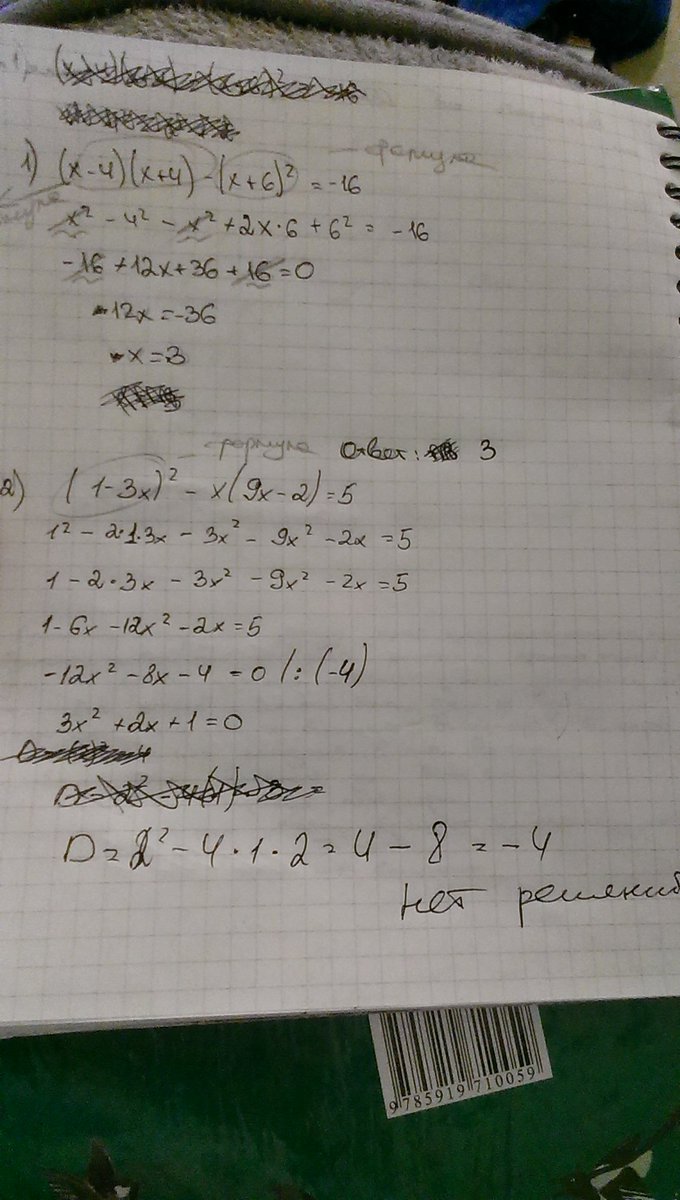 1) (x-4)(x+4)-(x+6)² = -16
- формула
x² - 4² - x² + 2x·6 + 6² = -16
-16 + 12x + 36 + 16 = 0
12x = -36
x = 3
- формула
Ответ: 3
2) (1-3x)² - x(9x-2) = 5
1² - 2·1·3x - 3x² - 9x² - 2x = 5
1 - 2·3x - 3x² - 9x² - 2x = 5
1 - 6x - 12x² - 2x = 5
-12x² - 8x - 4 = 0 /: (-4)
3x² + 2x + 1 = 0
D = 2² - 4·1·2 = 4 - 8 = -4
нет решений
9785919710059